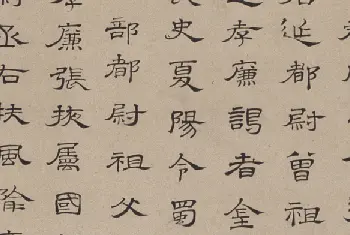 延都尉曾祖
孝廉謁者金
史夏陽令蜀
部都尉祖父
廉張掖屬國
丞右扶風隃